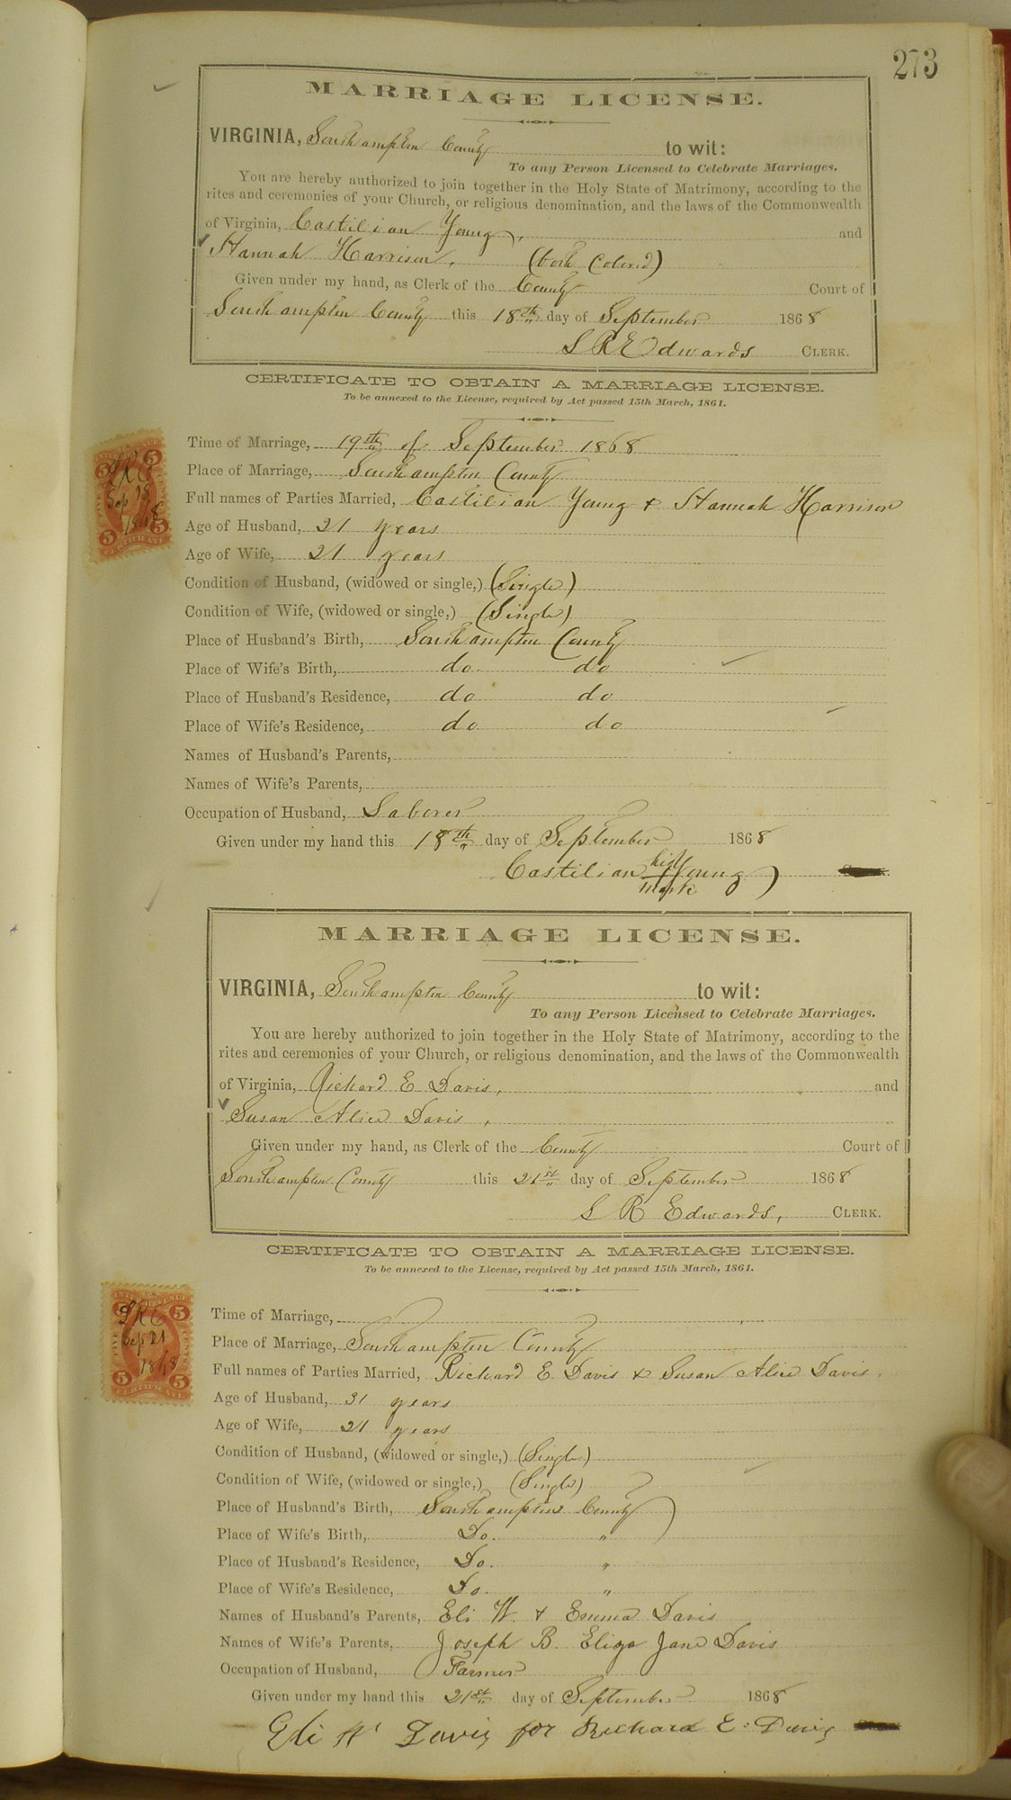 273
MARRIAGE LICENSE.
VIRGINIA, Southampton County to wit:
To any Person Licensed to Celebrate Marriages.
You are hereby authorized to join together in the Holy State of Matrimony, according to the
rites and ceremonies of your Church, or religious denomination, and the laws of the Commonwealth
of Virginia, Castilian Young, and
Hannah Harrison, (both Colored)
Given under my hand, as Clerk of the County Court of
Southampton County this 18th day of September 1868
L R Edwards CLERK.
CERTIFICATE TO OBTAIN A MARRIAGE LICENSE.
To be annexed to the License, required by Act passed 15th March, 1861.
Time of Marriage, 19th of September 1868
Place of Marriage, Southampton County
Full names of Parties Married, Castilian Young & Hannah Harrison
Age of Husband, 21 years
Age of Wife, 21 years
Condition of Husband, (widowed or single,) (Single)
Condition of Wife, (widowed or single,) (Single)
Place of Husband's Birth, Southampton County
Place of Wife's Birth, do do
Place of Husband's Residence, do do
Place of Wife's Residence, do do
Names of Husband's Parents,
Names of Wife's Parents,
Occupation of Husband, Laborer
Given under my hand this 18th day of September 1868
Castilian his Young
mark
5 5
LRE
Sep 18
1868
5 5
CERTIFICATE
MARRIAGE LICENSE.
VIRGINIA, Southampton County to wit:
To any Person Licensed to Celebrate Marriages.
You are hereby authorized to join together in the Holy State of Matrimony, according to the
rites and ceremonies of your Church, or religious denomination, and the laws of the Commonwealth
of Virginia, Richard E Davis, and
Susan Alice Davis,
Given under my hand, as Clerk of the County Court of
Southampton County this 21st day of September 1868
L R Edwards, CLERK.
CERTIFICATE TO OBTAIN A MARRIAGE LICENSE.
To be annexed to the License, required by Act passed 15th March, 1861.
Time of Marriage,
Place of Marriage, Southampton County
Full names of Parties Married, Richard E. Davis & Susan Alice Davis.
Age of Husband, 31 years
Age of Wife, 21 years
Condition of Husband, (widowed or single,) (Single)
Condition of Wife, (widowed or single,) (Single)
Place of Husband's Birth, Southampton County
Place of Wife's Birth, Do. "
Place of Husband's Residence, Do. "
Place of Wife's Residence, Do. "
Names of Husband's Parents, Eli W. & Emma Davis
Names of Wife's Parents, Joseph B. Eliza Jane Davis
Occupation of Husband, Farmer
Given under my hand this 21st day of September 1868
Eli W Davis for Richard E. Davis
5 5
LRE
Sep 21
1868
5 5
CERTIFICATE